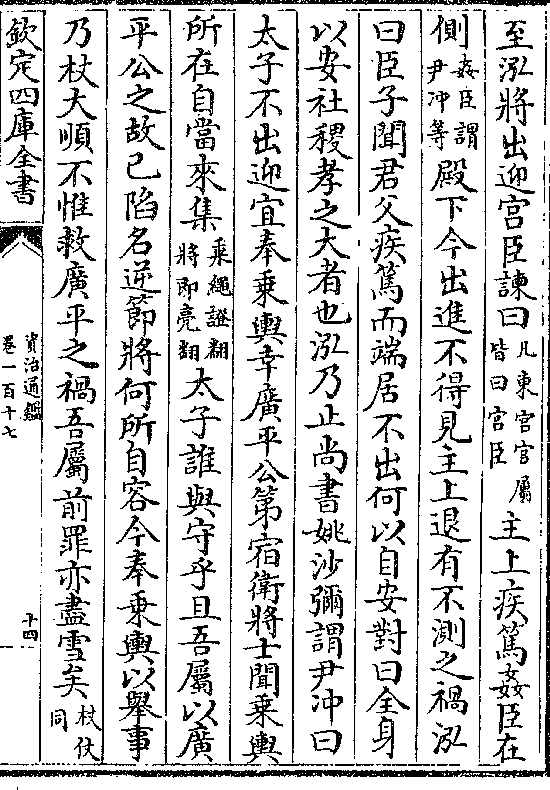 至泓將出迎宫臣諫曰凡東宫官屬皆曰宫臣主上疾篤姦臣在
側姦臣謂尹沖等殿下今出進不得見主上退有不測之禍泓
曰臣子聞君父疾篤而端居不出何以自安對曰全身
以安社稷孝之大者也泓乃止尚書姚沙彌謂尹沖曰
太子不出迎宜奉乗輿幸廣平公第宿衛將士聞乗輿
所在自當來集乗繩證翻將即亮翻太子誰與守乎且吾屬以廣
平公之故已陷名逆節將何所自容今奉乗輿以舉事
乃杖大順不惟救廣平之禍吾屬前罪亦盡雪矣杖仗同
欽定四庫全書
資治通鑑
卷一百十七
十四